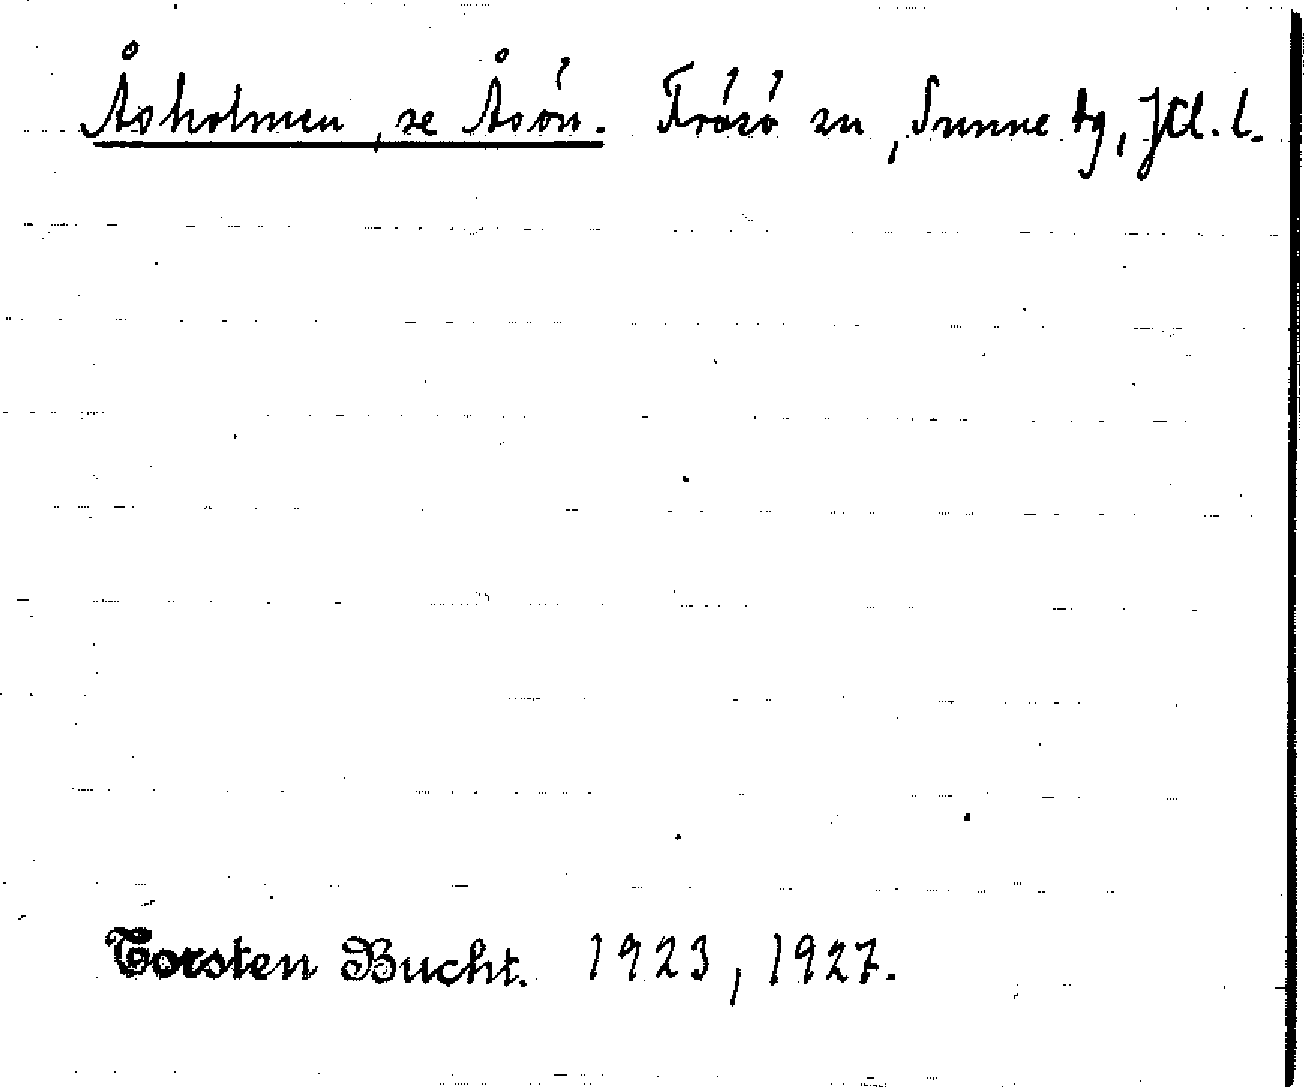 Åsholmen, se Åsön. Frösö sn, Sunne tg, Jtl. l.
Torsten Bucht. 1923, 1927.